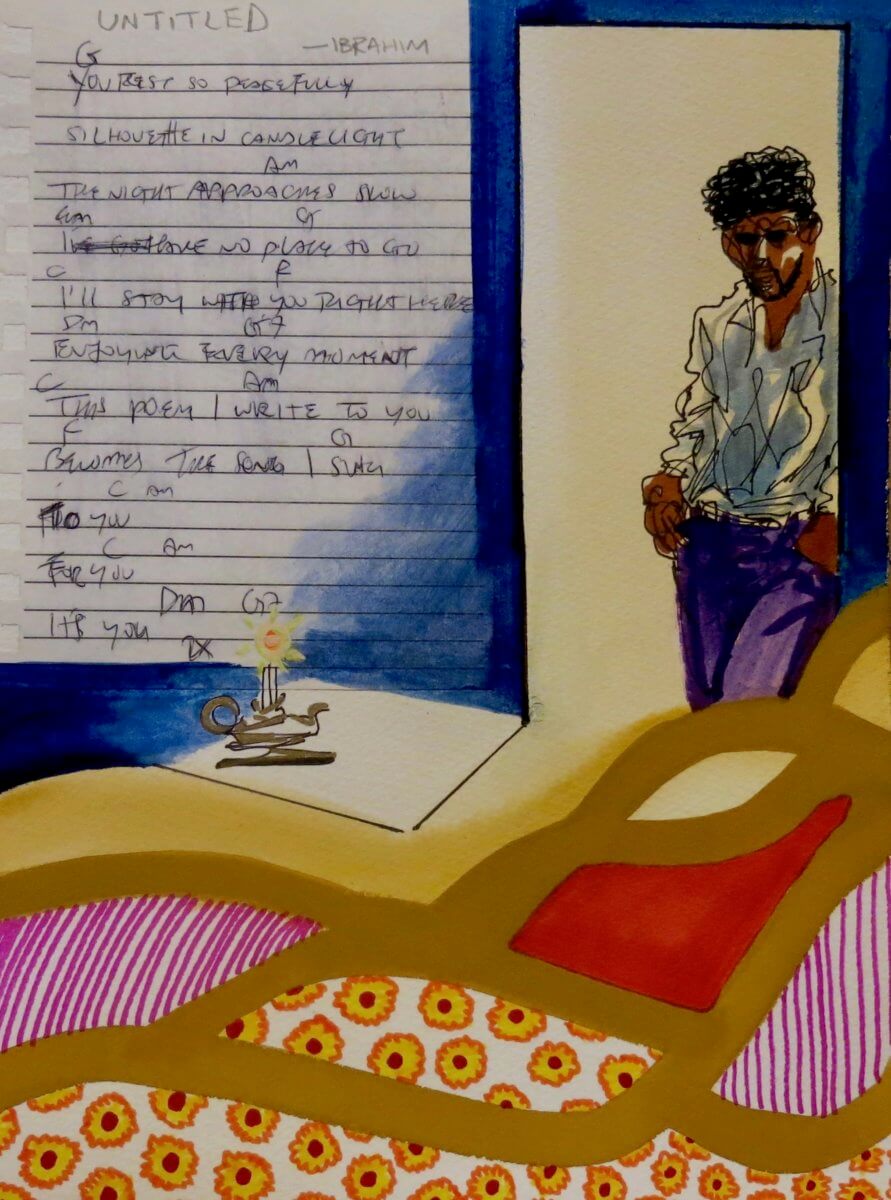 UNTITLED
—IBRAHIM
G
YOU REST SO PEACEFULLY
SILHOUETTE IN CANDLELIGHT
AM
THE NIGHT APPROACHES SLOW
EM G
I HAVE NO PLACE TO GO
C F
I'LL STAY WITH YOU RIGHT HERE
DM G7
ENJOYING EVERY MOMENT
C AM
THIS POEM I WRITE TO YOU
F G
BECOMES THE SONG I SING
C AM
TO YOU
C AM
FOR YOU
DM G7
IT'S YOU
2X